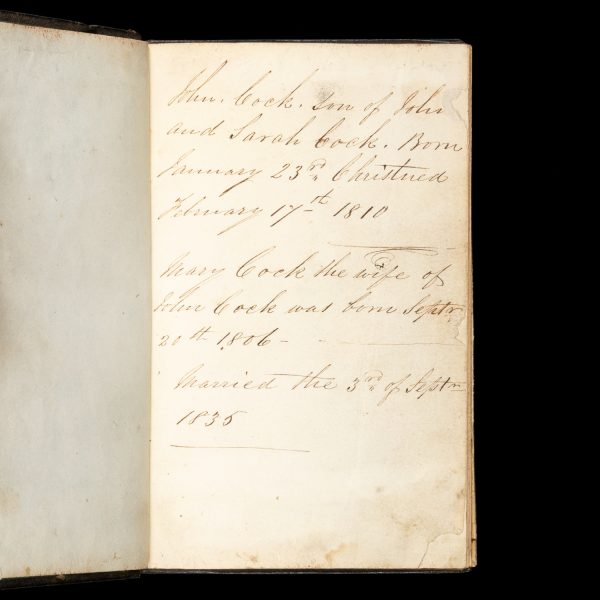 John. Cock. son of John
and Sarah Cock. Born
January 23rd Christned
February 17th 1810
Mary Cock the wife of
John Cock was born Septr
20th 1806 -
Married the 3rd of Septm
1835